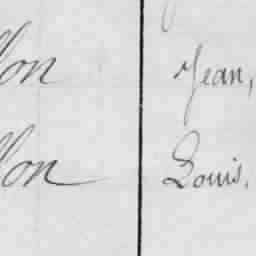 llon Jean,
llon Louis,